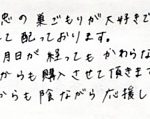 恩の巣ごもりが大好きで
して配っております。
月日が経ってもかわらな
からも購入させて頂きます
からも陰ながら応援し